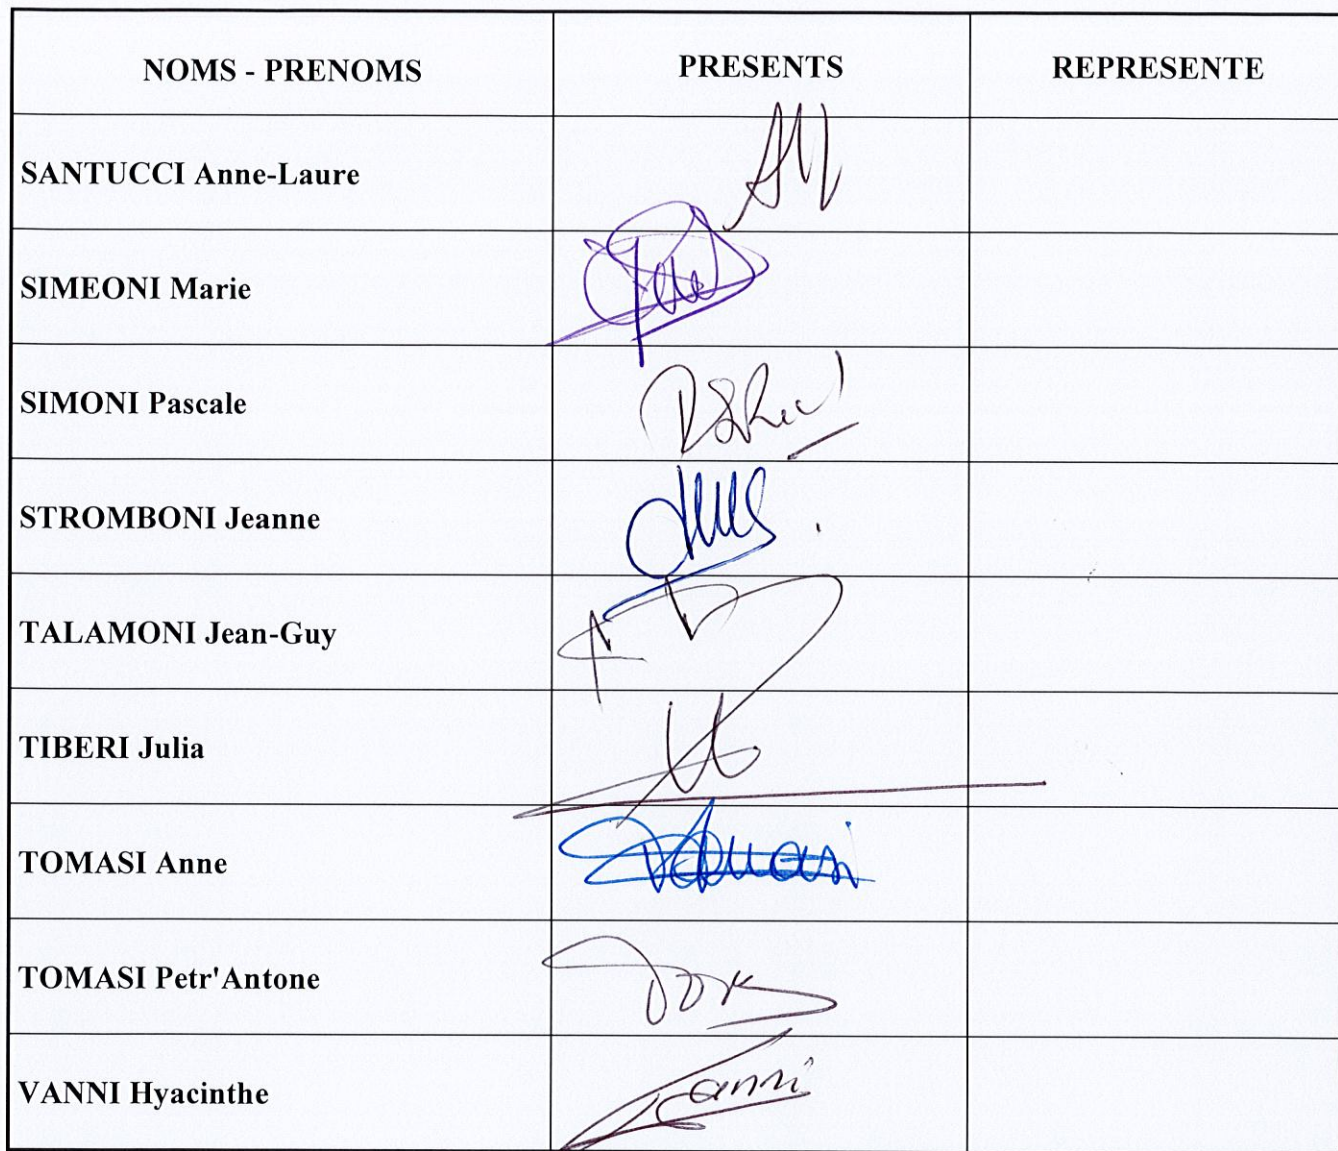 NOMS - PRENOMS PRESENTS REPRESENTE
SANTUCCI Anne-Laure
SIMEONI Marie
SIMONI Pascale
STROMBONI Jeanne
TALAMONI Jean-Guy
TIBERI Julia
TOMASI Anne Tomasi
TOMASI Petr'Antone
VANNI Hyacinthe Vanni